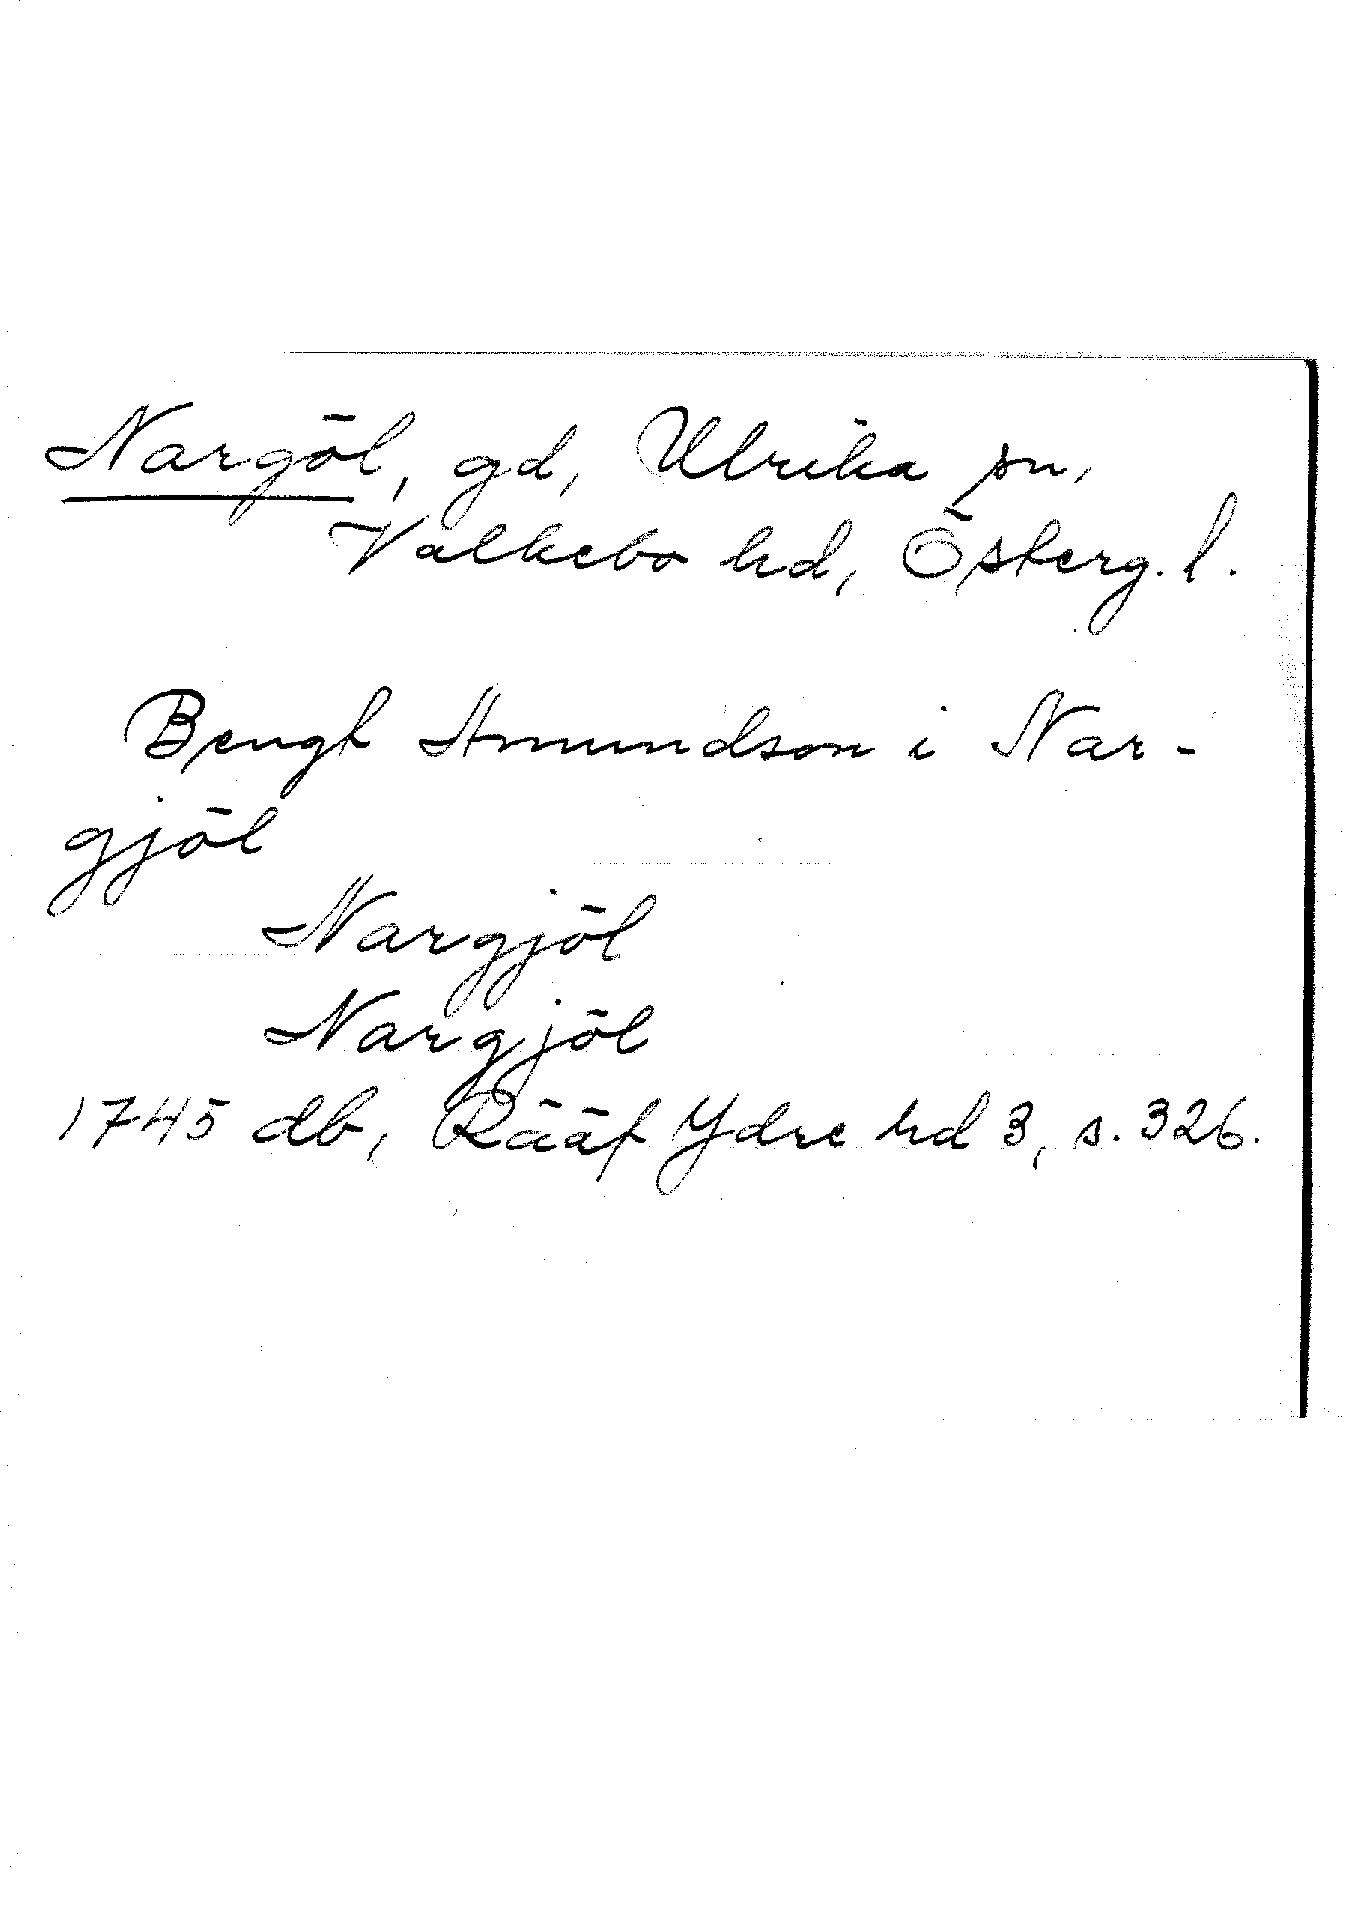 Nargöl, gd, Ulrika sn,
Valkebo hd, Österg. l.
Bengt Amundson i Nar-
gjöl
Nargjöl
Nargjöl
1745 db, Rääf Ydre hd 3, s. 326.